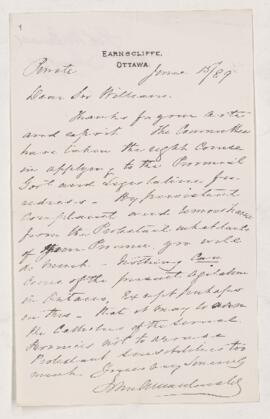 EARNSCLIFFE,
OTTAWA.
Private June 15/89
Dear Sir William,
Thanks for your note
and report. The Committee
have taken the right course
in applying to the Provincial
Govt and Legislature for
redress - By persistent
complaint and remonstrance
from the Protestant inhabitants
of your Province you will
do much - Nothing can
come of the present agitation
in Ontario, Except perhaps
on this - that it may warn
the Catholics of the several
Provinces not to arouse
Protestant susceptibilities too
much Yours very sincerely
John A Macdonald